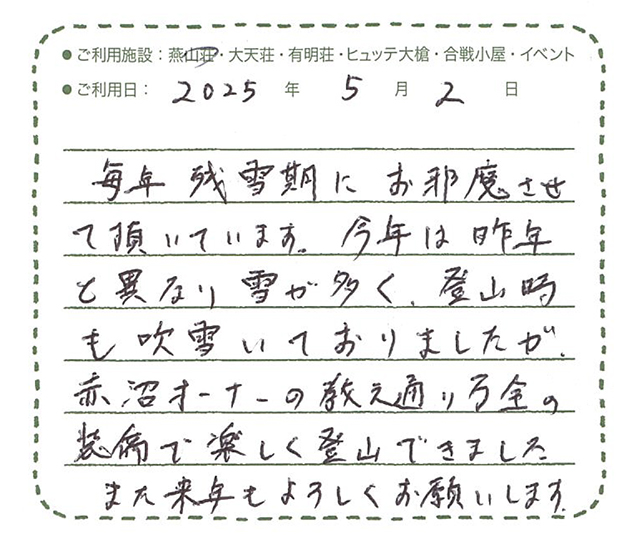 ●ご利用施設：燕山荘・大天荘・有明荘・ヒュッテ大槍・合戦小屋・イベント
●ご利用日： 2025 年 5 月 2 日
毎年 残雪期に お邪魔させ
て頂いています。今年は昨年
と異なり雪が多く、登山時
も吹雪いておりましたが、
赤沼オーナーの教え通り万全の
装備で楽しく登山できました
また来年もよろしくお願いします。